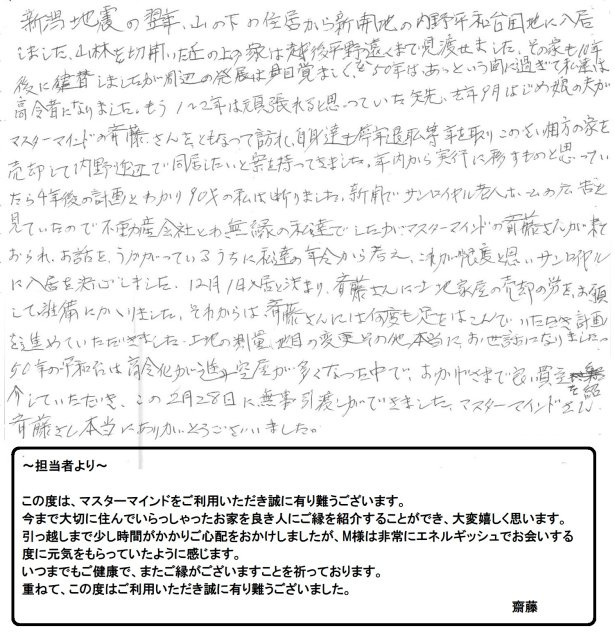 新潟地震の翌年、山の下の住居から新開地の内野平和台団地に入居
しました、山林を切開いた丘の上の家は越後平野遠くまで見渡せました、その家も10年
後に建替しましたが周辺の発展は目覚ましく50年はあっという間に過ぎて私達は
高令者になりました。もう1〜2年は頑張れると思っていた矢先、去年9月はじめ娘の夫が
マスターマインドの斉藤さんをともなって訪れ、自身達も停年退職等年を取りこのさい相方の家を
売却して内野近辺で同居したいと案を持ってきました。年内から実行に移すものと思ってい
たら4年後の計画とわかり90才の私は断りました。新聞でサンロイヤル老人ホームの広告を
見ていたので不動産会社とわ無縁の私達でしたがマスターマインドの斉藤さんが来て
おられ、お話をうかがっているうちに私達の年令から考え、これが限度と思いサンロイヤル
に入居を決心しました。12月1日入居と決まり、斉藤さんに土地家屋の売却の労をお願
して準備にかかりました。それからは斉藤さんには何度も足をはこんでいただき計画
を進めていただきました。土地の測量、地目の変更その他本当にお世話になりました。
50年の平和台は高令化が進み空屋が多くなった中で、おかげさまで良い買主を紹
介していただき、この2月28日に無事引渡しができました、マスターマインドさん
斉藤さん本当にありがとうございました。
～担当者より～
この度は、マスターマインドをご利用いただき誠に有り難うございます。
今まで大切に住んでいらっしゃったお家を良き人にご縁を紹介することができ、大変嬉しく思います。
引っ越しまで少し時間がかかりご心配をおかけしましたが、M様は非常にエネルギッシュでお会いする
度に元気をもらっていたように感じます。
いつまでもご健康で、またご縁がございますことを祈っております。
重ねて、この度はご利用いただき誠に有り難うございました。
齋藤